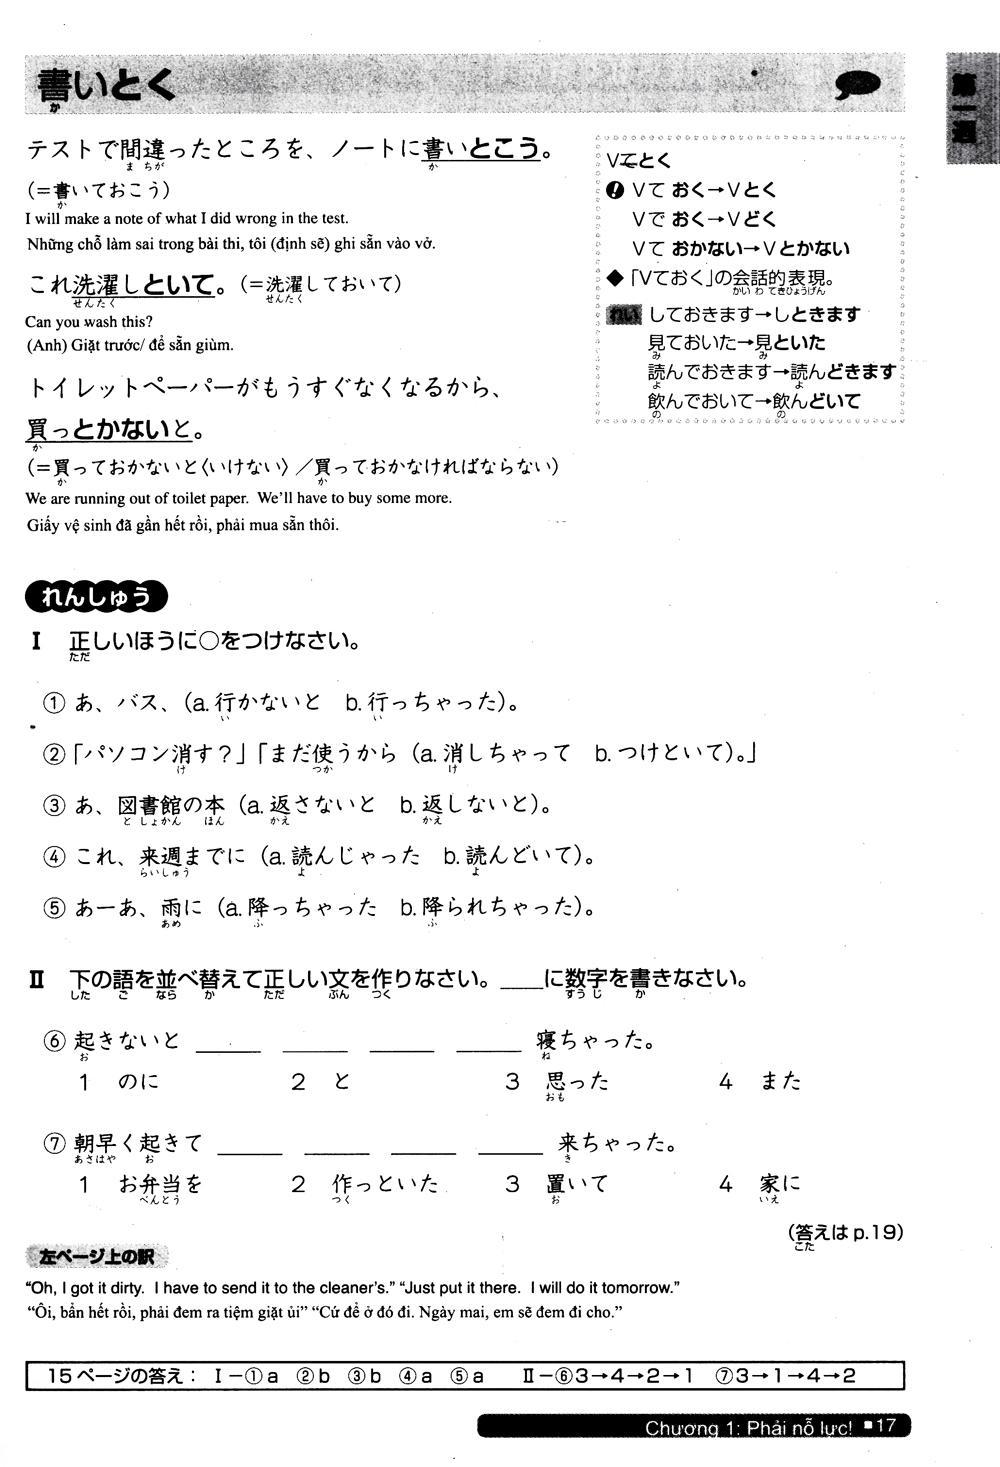 書いとく
か
第一週
テストで間違ったところを、ノートに書いとこう。
ま ちが か
(=書いておこう)
か
I will make a note of what I did wrong in the test.
Những chỗ làm sai trong bài thi, tôi (định sẽ) ghi sẵn vào vở.
これ洗濯しといて。(=洗濯しておいて)
せんたく せんたく
Can you wash this?
(Anh) Giặt trước/ để sẵn giùm.
トイレットペーパーがもうすぐなくなるから、
買っとかないと。
か
(=買っておかないと〈いけない〉/買っておかなければならない)
か か
We are running out of toilet paper. We'll have to buy some more.
Giấy vệ sinh đã gần hết rồi, phải mua sẵn thôi.
Vてとく
! Vて おく→Vとく
Vで おく→Vどく
Vて おかない→Vとかない
◆「Vておく」の会話的表現。
かい わ てきひょうげん
れい しておきます→しときます
見ておいた→見といた
み み
読んでおきます→読んどきます
よ よ
飲んでおいて→飲んどいて
の の
れんしゅう
I 正しいほうに○をつけなさい。
ただ
① あ、バス、(a.行かないと b.行っちゃった)。
い い
②「パソコン消す?」「まだ使うから (a.消しちゃって b.つけといて)。」
け つか け
③ あ、図書館の本 (a.返さないと b.返しないと)。
と しょかん ほん かえ かえ
④ これ、来週までに (a.読んじゃった b.読んどいて)。
らいしゅう よ よ
⑤ あーあ、雨に (a.降っちゃった b.降られちゃった)。
あめ ふ ふ
II 下の語を並べ替えて正しい文を作りなさい。____に数字を書きなさい。
した ご なら か ただ ぶん つく すう じ か
⑥ 起きないと ____ ____ ____ ____ 寝ちゃった。
お ね
1 のに 2 と 3 思った 4 また
おも
⑦ 朝早く起きて ____ ____ ____ ____ 来ちゃった。
あさはや お き
1 お弁当を 2 作っといた 3 置いて 4 家に
べんとう つく お いえ
(答えは p.19)
こた
左ページ上の訳
“Oh, I got it dirty. I have to send it to the cleaner's.” “Just put it there. I will do it tomorrow.”
“Ôi, bẩn hết rồi, phải đem ra tiệm giặt ủi” “Cứ để ở đó đi. Ngày mai, em sẽ đem đi cho.”
15ページの答え: I-①a ②b ③b ④a ⑤a II-⑥3→4→2→1 ⑦3→1→4→2
Chương 1: Phải nỗ lực! ■17